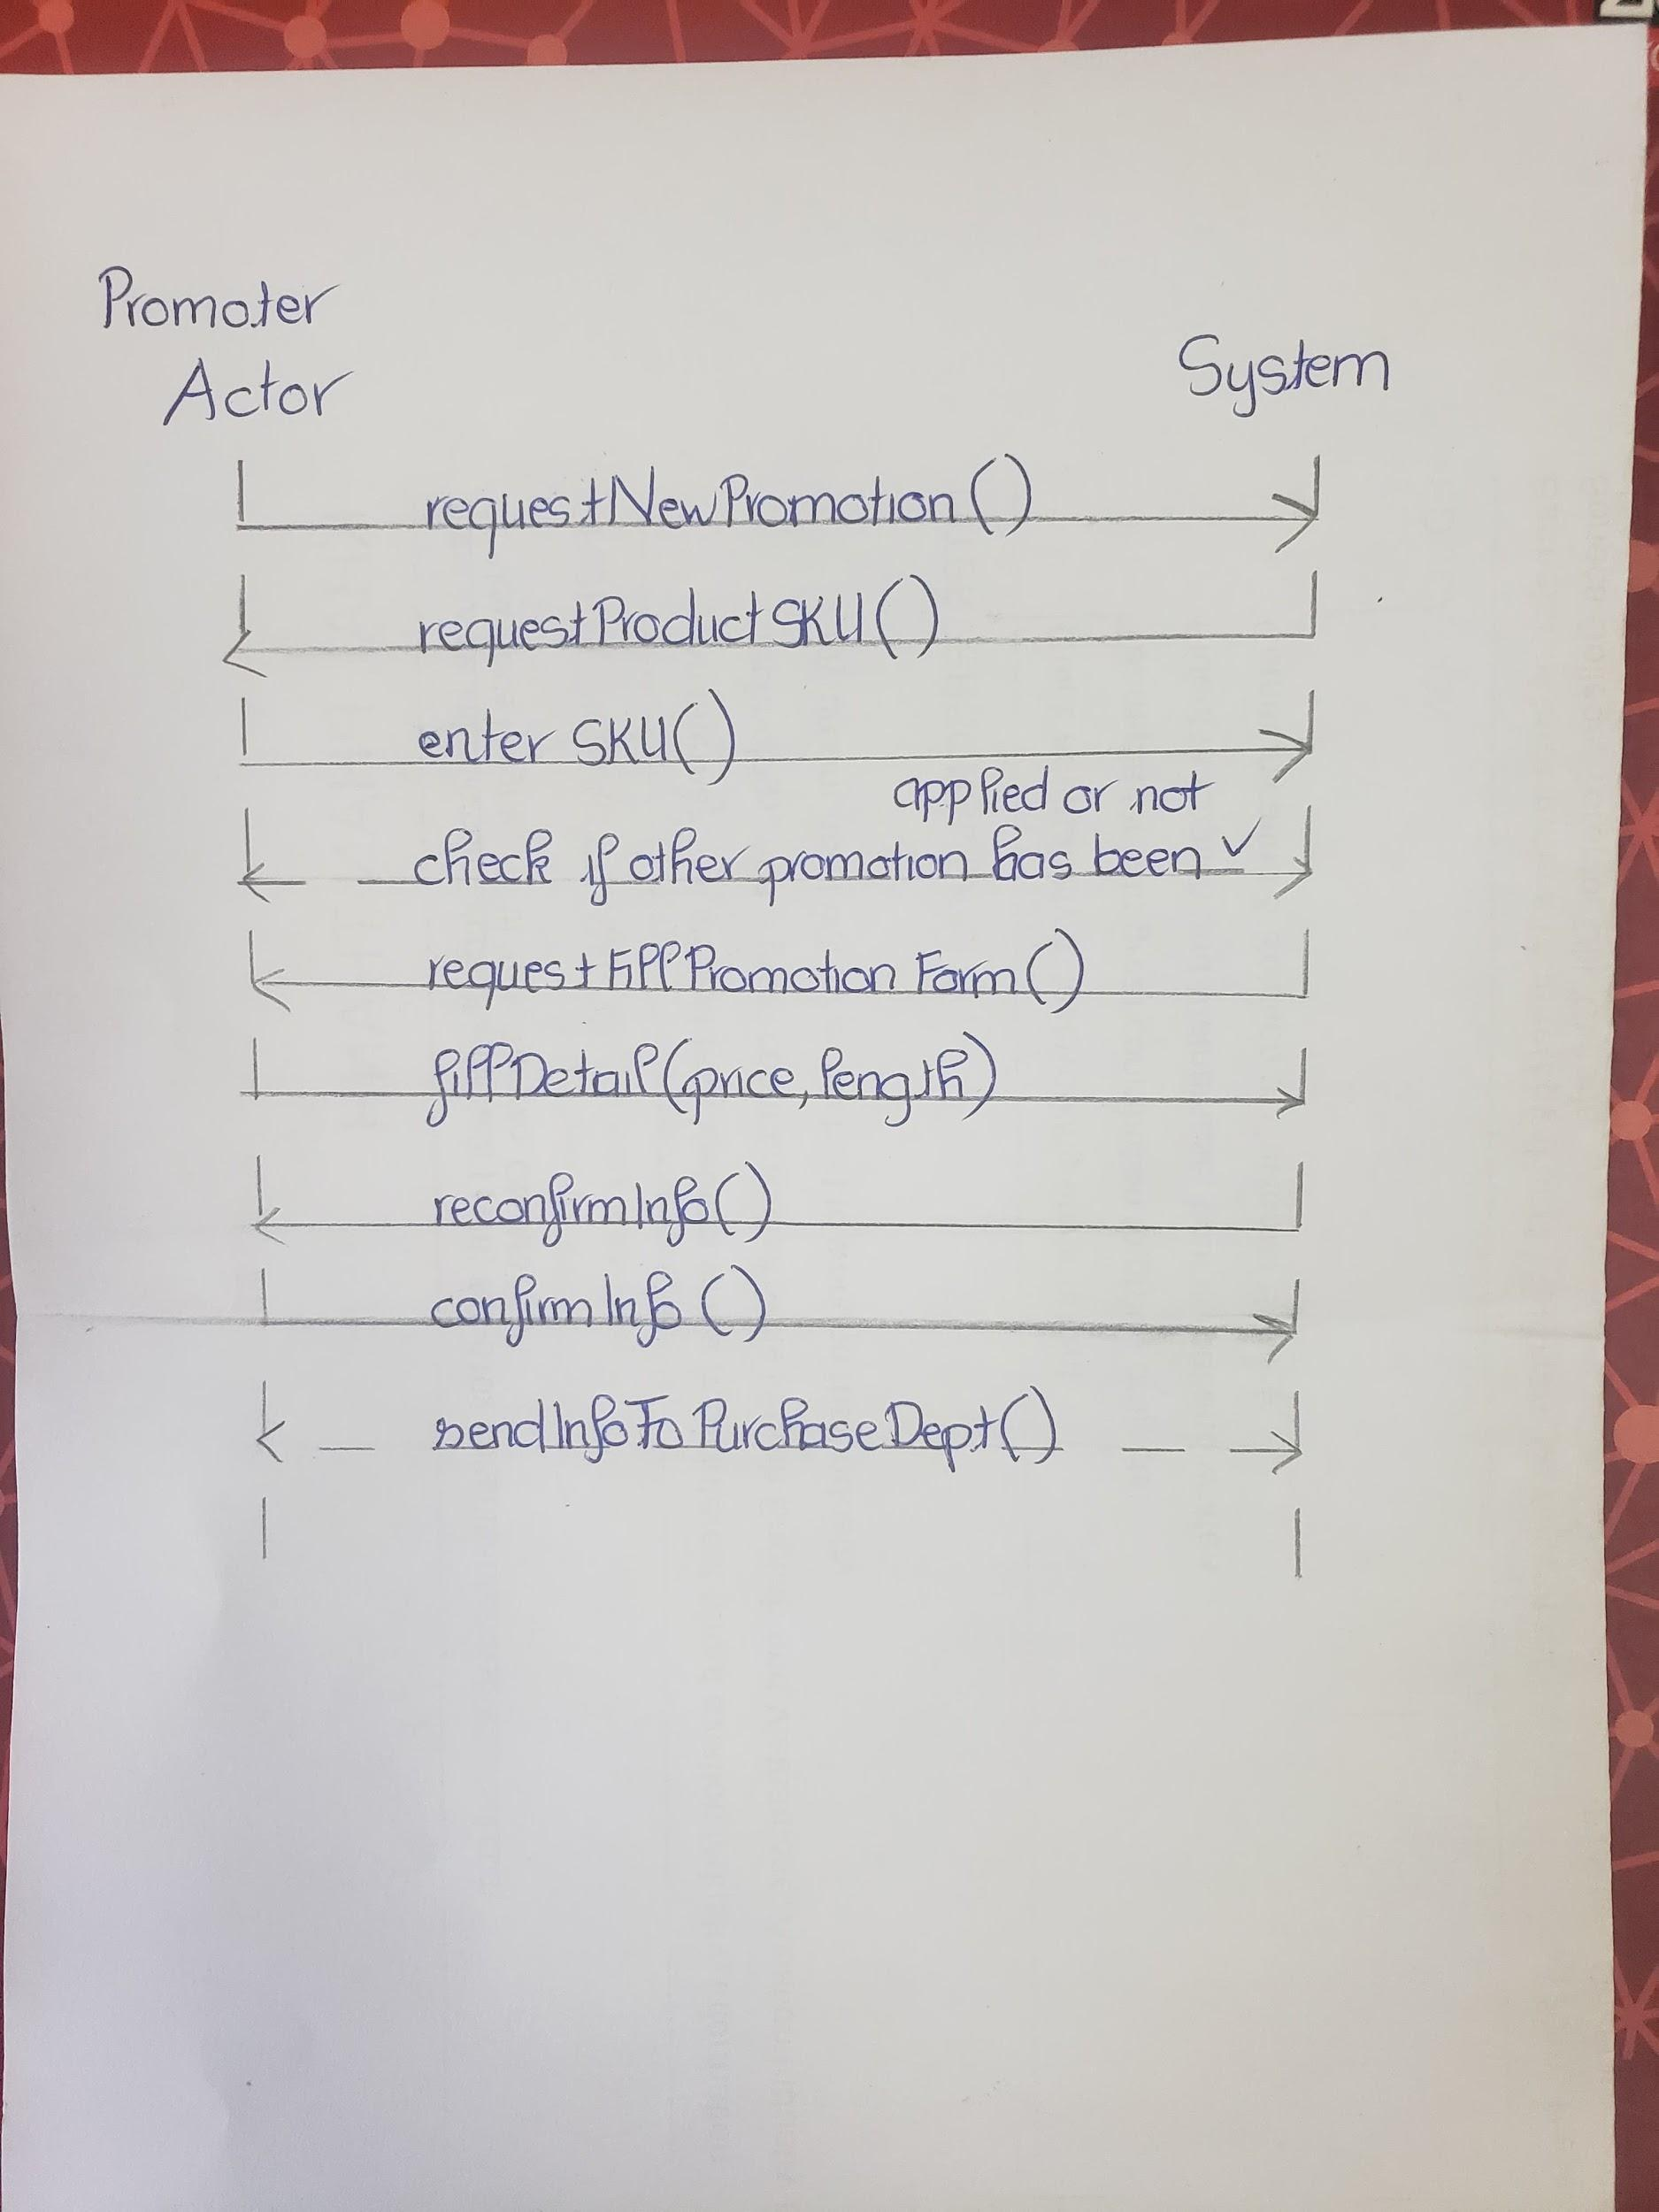 Promoter
Actor
System
requestNewPromotion()
requestProductSKU()
enter SKU()
applied or not
check if other promotion has been ✓
requestFillPromotion Form()
fillDetail(price, length)
reconfirmInfo()
confirmInfo()
sendInfoToPurchaseDept()